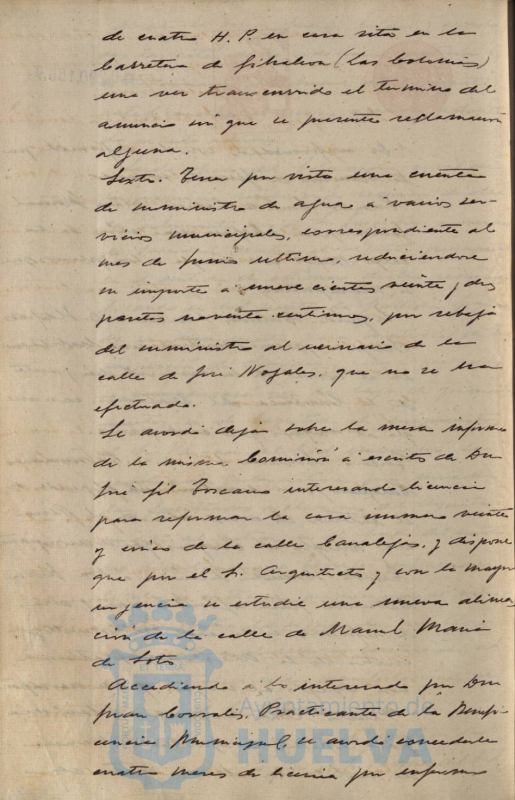 de cuatro H. P. en casa sita en la
Carretera de Gibraleon (Las Colonias)
una vez transcurrido el termino del
anuncio sin que se presente reclamación
alguna.
Sexto. Tener por visto una cuenta
de suministro de agua á varios ser-
vicios municipales, correspondiente al
mes de Junio ultimo, reduciendose
su importe á nuevecientas veinte y dos
pesetas noventa centimos, por rebaja
del suministro al urinario de la
calle de José Nogales, que no se ha
efectuado.
Se acordó dejar sobre la mesa informe
de la misma Comisión á escrito de Don
José Gil Toscano interesando licencia
para reformar la casa numero veinte
y cinco de la calle Canalejas, y dispone
que por el Sr. Arquitecto y con la mayor
urgencia se estudie una nueva alinea-
ción de la calle de Manuel Maria
de Soto.
Accediendo á lo interesado por Don
Juan Corrales, Practicante de la Benefi-
cencia Municipal, se acordó concederle
cuatro meses de licencia por enfermo
Ayuntamiento de
HUELVA